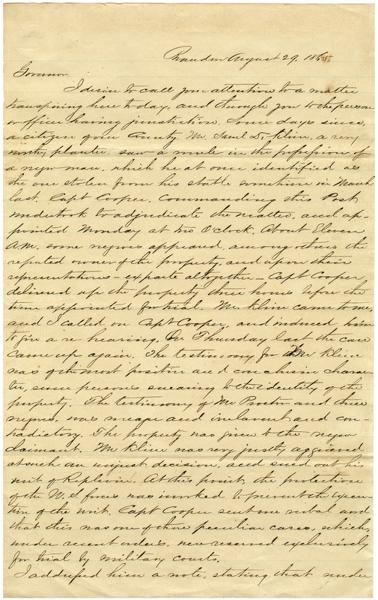 Brandon August 29, 1865
Governor
I desire to call your attention to a matter
transpiring here to day, and through you to the person
or officer having jurisdiction. Some days since,
a citizen of our County Mr. Saml D. Kline, a very
worthy planter saw a mule in the possession of
a negro man, which he at once identified as
the one stolen from his stable sometime in March
last. Capt Cooper, Commanding this Post,
undertook to adjudicate the matter, and ap-
pointed Monday at two O'clock. About Eleven
A.M. some negroes appeared, among others the
reputed owner of the property, and upon their
representations - exparte altogether - Capt Cooper
delivered up the property three hours before the
time appointed for trial. Mr Kline came to me,
and I called on Capt Cooper, and induced him
to give a re-hearing. On Thursday last the case
came up again. The testimony for Mr Kline
was of the most positive and conclusive charac-
ter, seven persons swearing to the identity of the
property. The testimony of Mr Proctor and three
negroes was meagre and in law and con-
tradictory. The property was given to the negro
claimant. Mr Kline was very justly aggrieved
at such an unjust decision, and sued out his
writ of Replevin. At this point, the protection
of the U.S. forces was invoked to prevent the execu-
tion of the writ. Capt Cooper sent me word
that this was one of those peculiar cases, which,
under recent orders, were reserved exclusively
for trial by military courts.
I addressed him a note, stating that under